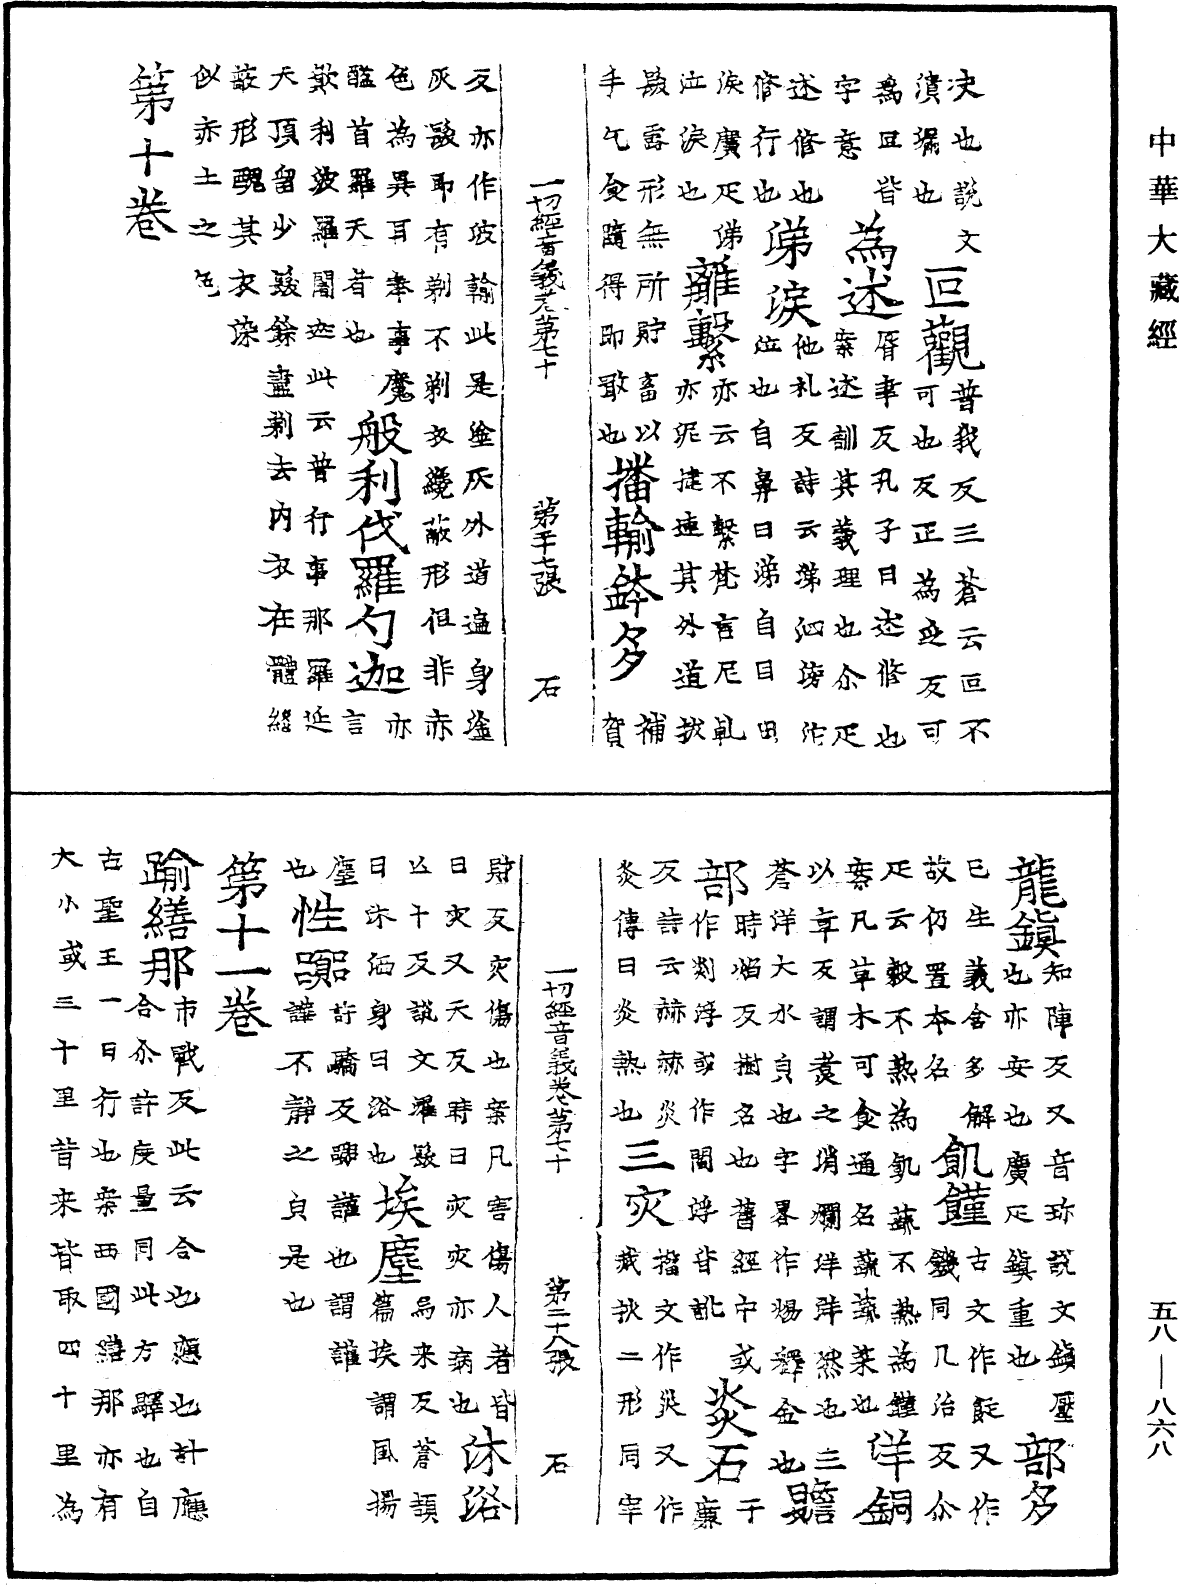 中華大藏經
決也說文叵觀普我反三蒼云叵不
潰漏也可也反正為叵反可
為叵皆為述脣聿反孔子曰述修也
字意案述訓其義理也尒疋
述修也涕淚他礼反詩云涕泗滂沱
修行也泣也自鼻曰涕自目曰
淚廣疋涕離繫亦云不繫梵言尼乹
泣淚也亦泥揵連其外道拔
髮露形無所貯畜以播輸鉢多補
手乞食隨得即噉也賀
一切經音義卷第七十 第二十七張 石
反亦作波輸此是塗灰外道遍身塗
灰髮即有剃不剃衣纔蔽形但非赤
色為異耳奉事魔般利伐羅勺迦亦
醯首羅天者也言
欺利波羅闍迦此云普行事那羅延
天頂留少髮餘盡剃去內衣在體纔
蔽形醜其衣染
似赤土之色
第十卷
龍鎮知陣反又音珍說文鎮壓部多
也亦安也廣疋鎮重也
已生義含多解飢饉古文作飪又作
故仍置本名饑同几治反尒
疋云穀不熟為飢蔬不熟為饉洋銅
案凡草木可食通名蔬蔬菜也
以章反謂煑之消爛洋洋然也三贍
蒼洋大水皃也字畧作煬釋金也
部時焰反樹名也舊經中或炎石于
作剡浮或作閻浮皆訛廉
反詩云赫赫炎炎籀文作炎又作
炎傳曰炎熱也三灾菑扻二形同宰
一切經音義卷第七十 第二十八張 石
財反灾傷也案凡害傷人者皆沐浴
曰灾又天反時曰灾灾亦病也
亡卜反說文濯髮埃塵烏来反蒼頡
曰沐洒身曰浴也篇埃謂風揚
塵性躁許驕反躁讙也謂讙
也譁不靜之皃是也
第十一卷
踰繕那市戰反此云合也應也計應
合尒許度量同此方驛也自
古聖王一日行也案西國繕那亦有
大小或三十里昔来皆取四十里為
五八—八六八